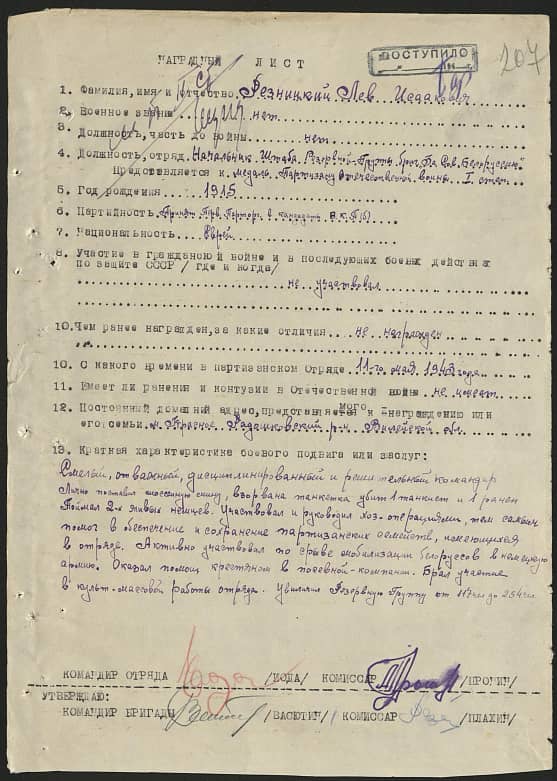 ПОСТУПИЛО
207
НАГРАДНЫЙ ЛИСТ
1. Фамилия, имя и отчество Резницкий Лев Исаакович
2. Военное звание нет
3. Должность, часть до войны нет
4. Должность, отряд. Начальник Штаба Резервной Группы бриг. "За Сов. Белоруссию"
Представляется к медаль. Партизану Отечественной войны I степ.
5. Год рождения 1915
6. Партийность Принят Перв. Парторг. в кандидаты В.К.П(б)
7. Национальность Еврей
8. Участие в гражданской войне и в последующих боевых действиях
по защите СССР /где и когда/
не участвовал
10. Чем ранее награжден, за какие отличия не награжден
10. С какого времени в партизанском отряде. 11-го мая 1943 года
11. Имеет ли ранения и контузии в Отечественной войне не имеет
12. Постоянный домашний адрес, представляемого к награждению или
его семьи. м. Красное Радашковский р-н Вилейской обл.
13. Краткая характеристика боевого подвига или заслуг:
Смелый, отважной, дисциплинированной и решительной командир
Лично поставил шоссейную мину, взорвана танкетка убит 1 танкист и 1 ранен
Поймал 2-х живых немцев. Участвовал и руководил хоз-операциями, тем самым
помог в обеспечение и сохранение партизанских семейств, имеющихся
в отряде. Активно участвовал по срыве мобилизации белоруссов в немецкую
армию. Оказал помощ крестяном в посевной-компании. Брал участие
в культ-массовой работы отряда. Увиличил Резервную Группу от 117 чел до 254 чел.
КОМАНДИР ОТРЯДА /ЙОДА/ КОМИССАР /ПРОНИН/
УТВЕРЖДАЮ:
КОМАНДИР БРИГАДЫ /ВАСЮТИН/ КОМИССАР /ПЛАХИН/